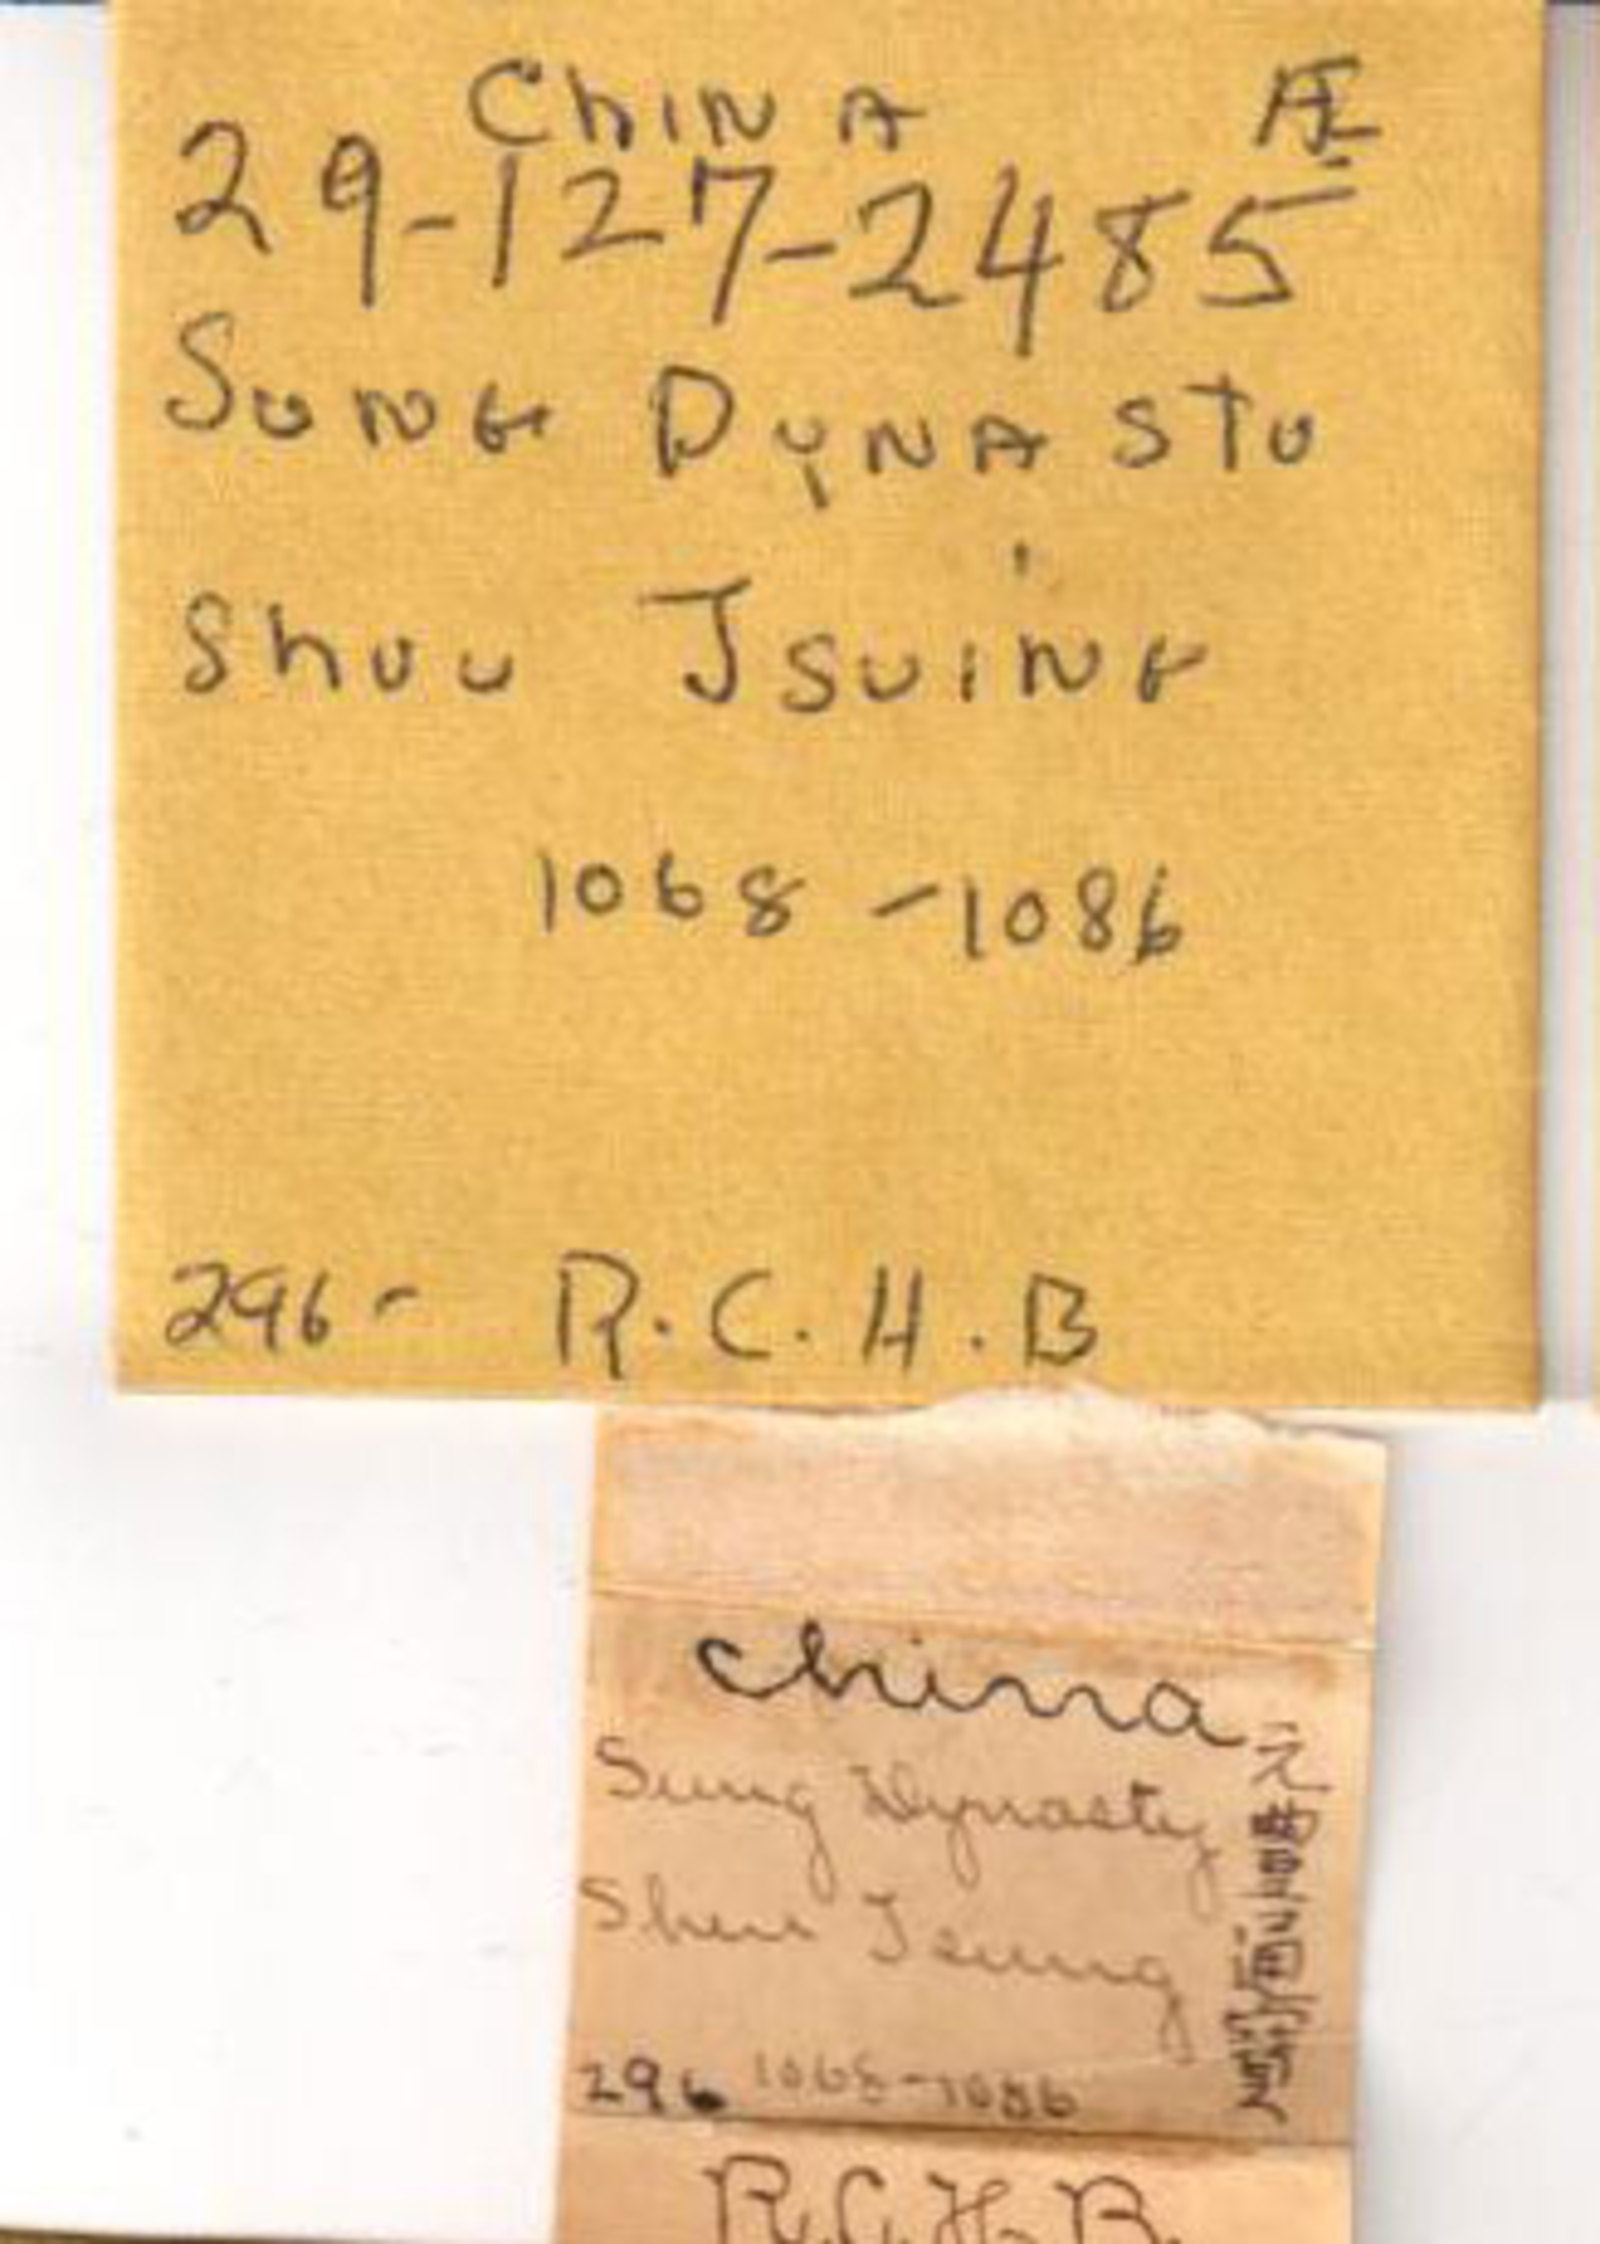 ChINA Æ
29-127-2485
SUNG DYNASTU
Shuu TSUING
1068 - 1086
296- R.C.H.B
China
Sung Dynasty
Shen Tsung
296 1068-1086
元豐通寶
R.C.H.B.